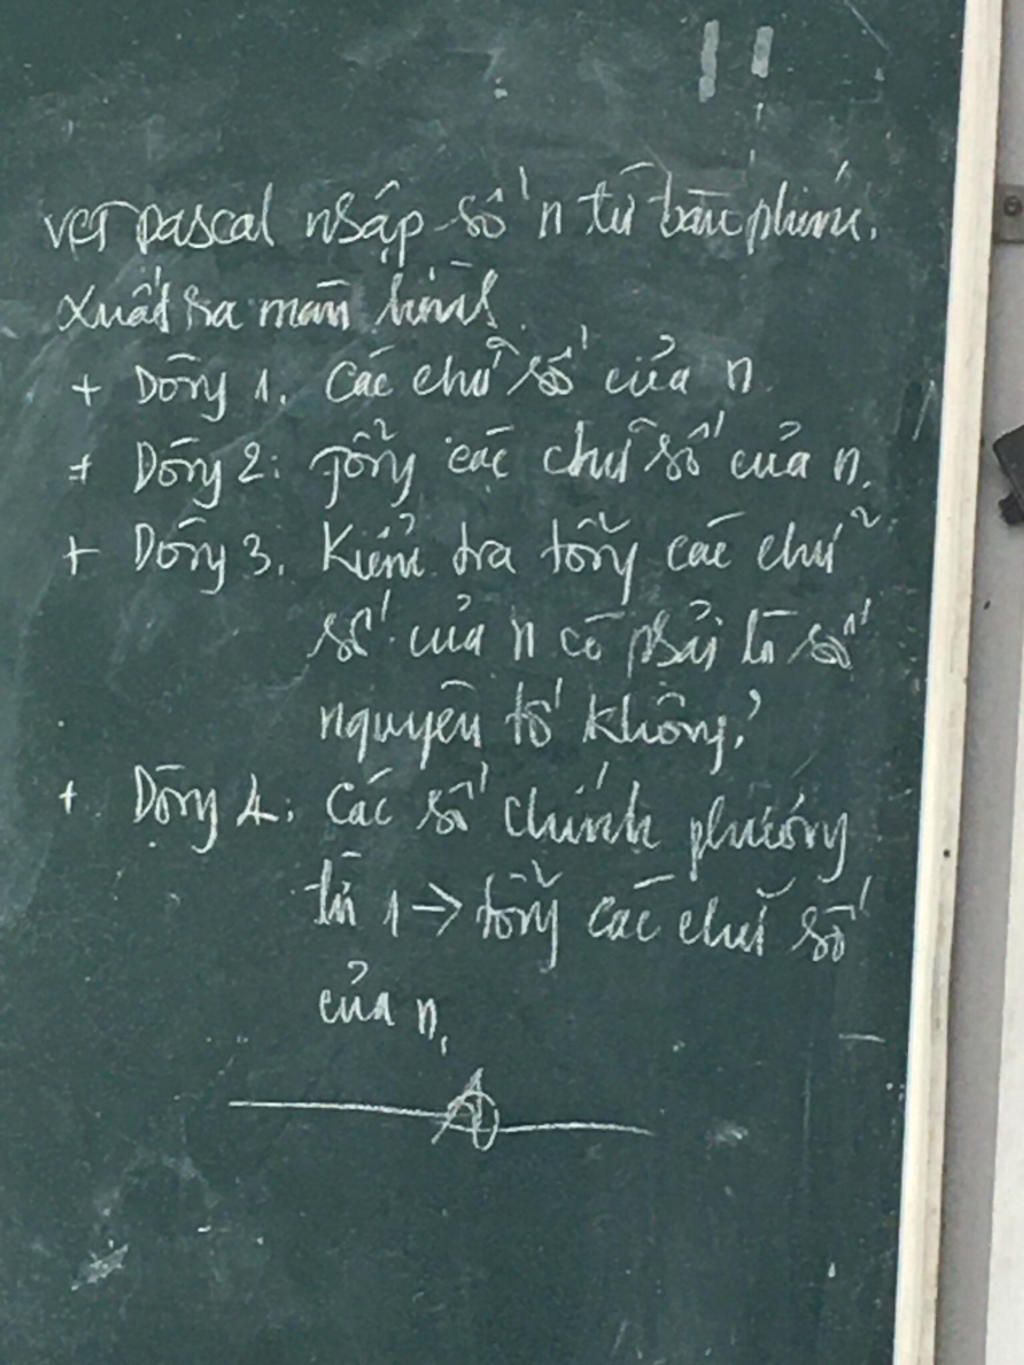 VCT pascal nhập số n từ bàn phím.
Xuất ra màn hình
+ Dòng 1. Các chữ số của n
+ Dòng 2: Tổng các chữ số của n.
+ Dòng 3. Kiểm tra tổng các chữ
số của n có phải là số
nguyên tố không?
+ Dòng 4. Các số chính phương
từ 1 → tổng các chữ số
của n.